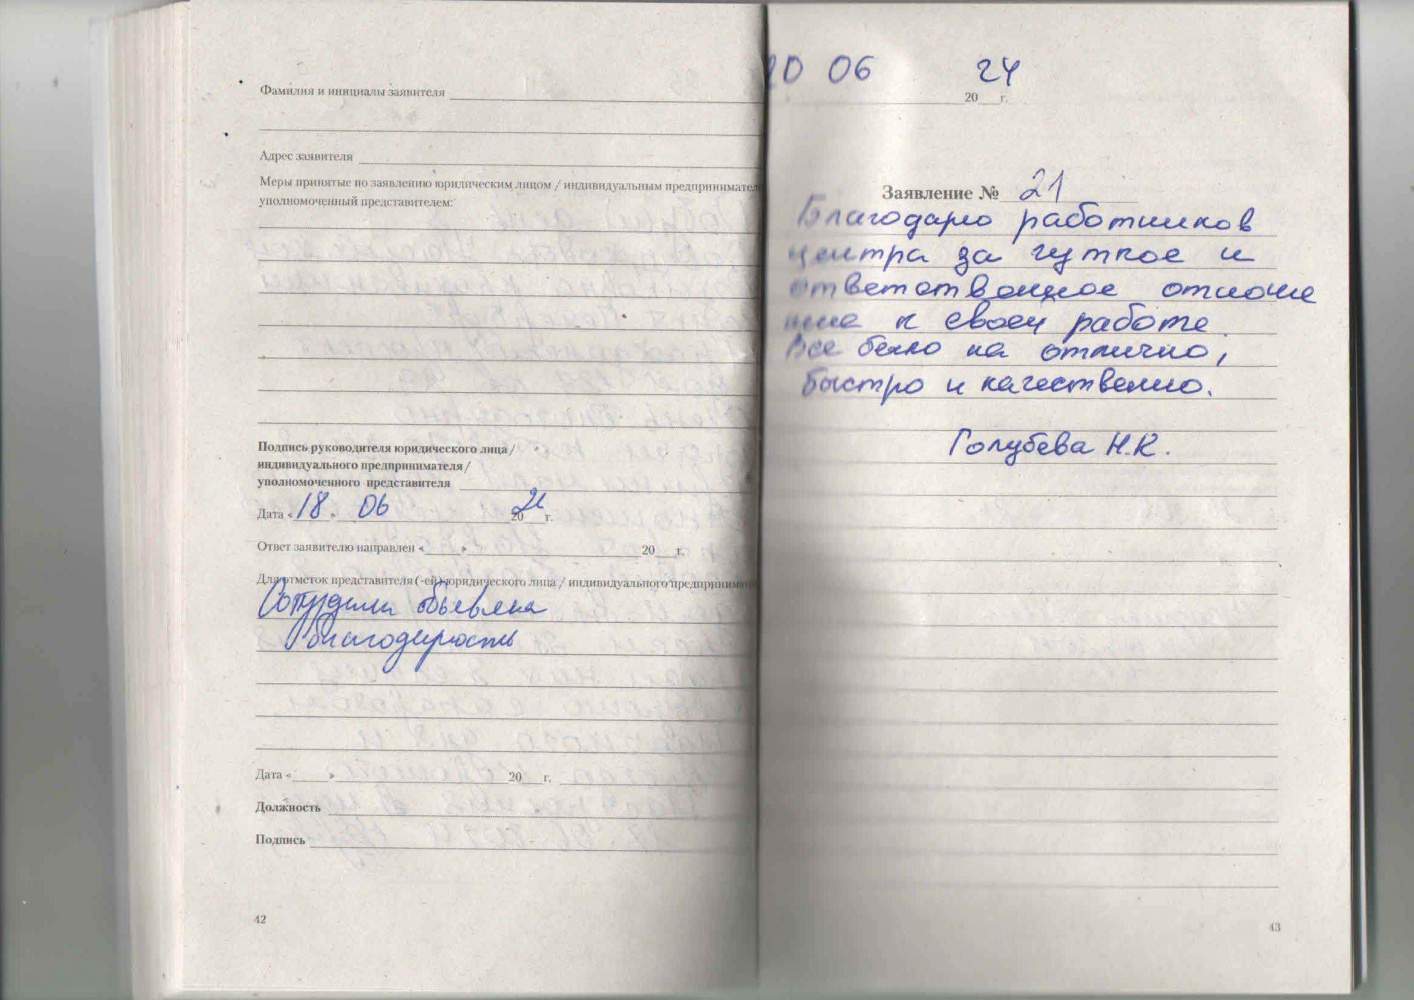 Фамилия и инициалы заявителя
Адрес заявителя
Меры принятые по заявлению юридическим лицом / индивидуальным предпринимател
уполномоченный представителем:
Подпись руководителя юридического лица /
индивидуального предпринимателя /
уполномоченного представителя
Дата «18» 06 20 г.
Ответ заявителю направлен « » 20 г.
Для отметок представителя (-ей) юридического лица / индивидуального предпринима
объявлена
благодарность
Дата « » 20 г.
Должность
Подпись
42
20 06 24
20 г.
Заявление № 21
Благодарю работников
центра за чуткое и
ответственное отноше
ние к своей работе.
Все было на отлично,
быстро и качественно.
Голубева Н.К.
43